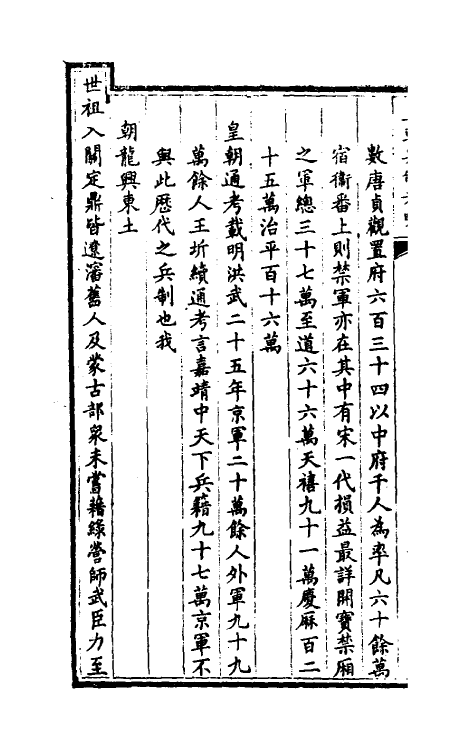 數唐貞觀置府六百三十四以中府千人為率凡六十餘萬
宿衞番上則禁軍亦在其中有宋一代損益最詳開寶禁厢
之軍總三十七萬至道六十六萬天禧九十一萬慶厤百二
十五萬治平百十六萬
皇朝通考載明洪武二十五年京軍二十萬餘人外軍九十九
萬餘人王圻續通考言嘉靖中天下兵籍九十七萬京軍不
與此歴代之兵制也我
朝龍興東土
世祖入關定鼎皆遼瀋舊人及蒙古部衆未嘗藉綠營師武臣力至